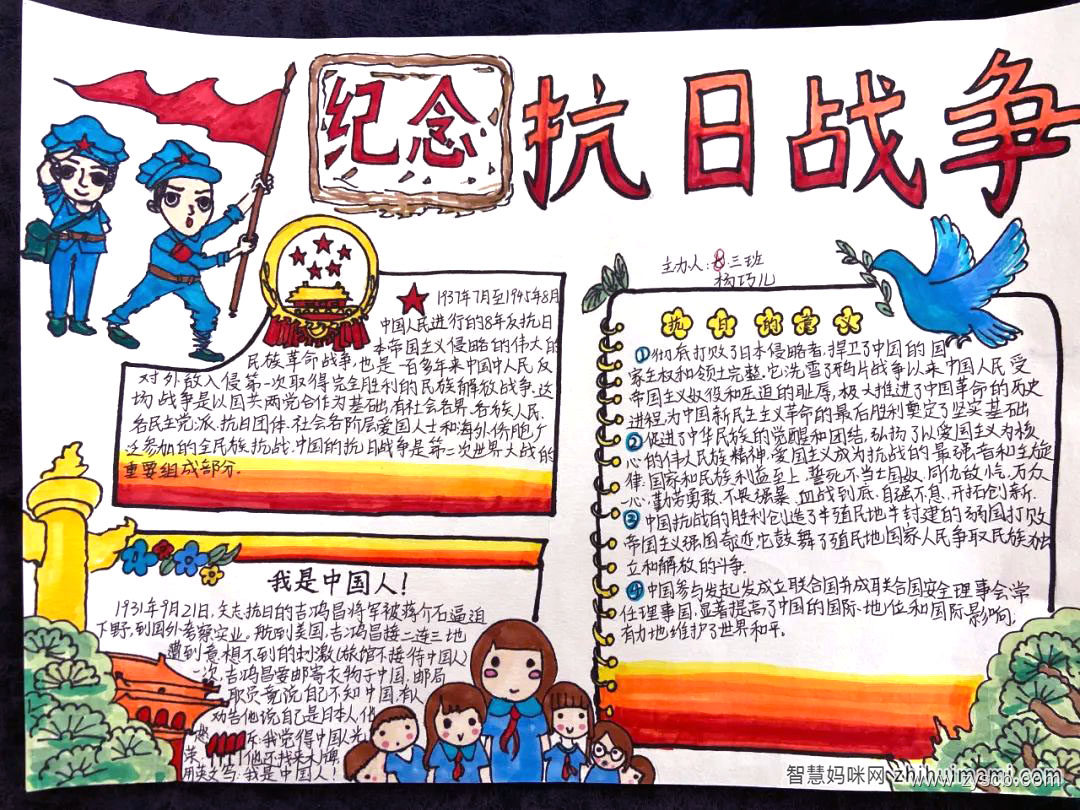 纪念
抗日战争
主办人:8.三班
杨巧儿
1937年7月至1945年8月
中国人民进行的8年反抗日
本帝国主义侵略的伟大的
民族革命战争,也是一百多年来中国中人民反
对外敌入侵第一次取得完全胜利的民族解放战争.这
场战争是以国共两党合作为基础,有社会各界、各族人民、
各民主党派、抗日团体、社会各阶层爱国人士和海外侨胞广
泛参加的全民族抗战.中国的抗日战争是第二次世界大战的
重要组成部分.
抗日的意义
①彻底打败了日本侵略者,捍卫了中国的国
家主权和领土完整.它洗雪了鸦片战争以来中国人民受
帝国主义奴役和压迫的耻辱,极大推进了中国革命的历史
进程,为中国新民主主义革命的最后胜利奠定了坚实基础.
②促进了中华民族的觉醒和团结,弘扬了以爱国主义为核
心的伟大民族精神.爱国主义成为抗战的最强音和主旋
律.国家和民族利益至上,誓死不当亡国奴,同仇敌忾,万众
一心,勤劳勇敢,不畏强暴,血战到底,自强不息,开拓创新.
③中国抗战的胜利创造了半殖民地半封建的弱国打败
帝国主义强国奇迹,它鼓舞了殖民地国家人民争取民族独
立和解放的斗争.
④中国参与发起发成立联合国并成联合国安全理事会常
任理事国,显著提高了中国的国际地位和国际影响,
有力地维护了世界和平.
我是中国人!
1931年9月21日,矢志抗日的吉鸿昌将军被蒋介石逼迫
下野,到国外考察实业。船到美国,吉鸿昌接二连三地
遭到意想不到的刺激(旅馆不接待中国人)
一次,吉鸿昌要邮寄衣物于中国,邮局
职员竟说自己不知中国.有人
劝告他说自己是日本人,他
怒斥:我觉得中国人光
荣,他还找来大牌
用英文写:我是中国人!
智慧妈咪网 zhihuimami.com